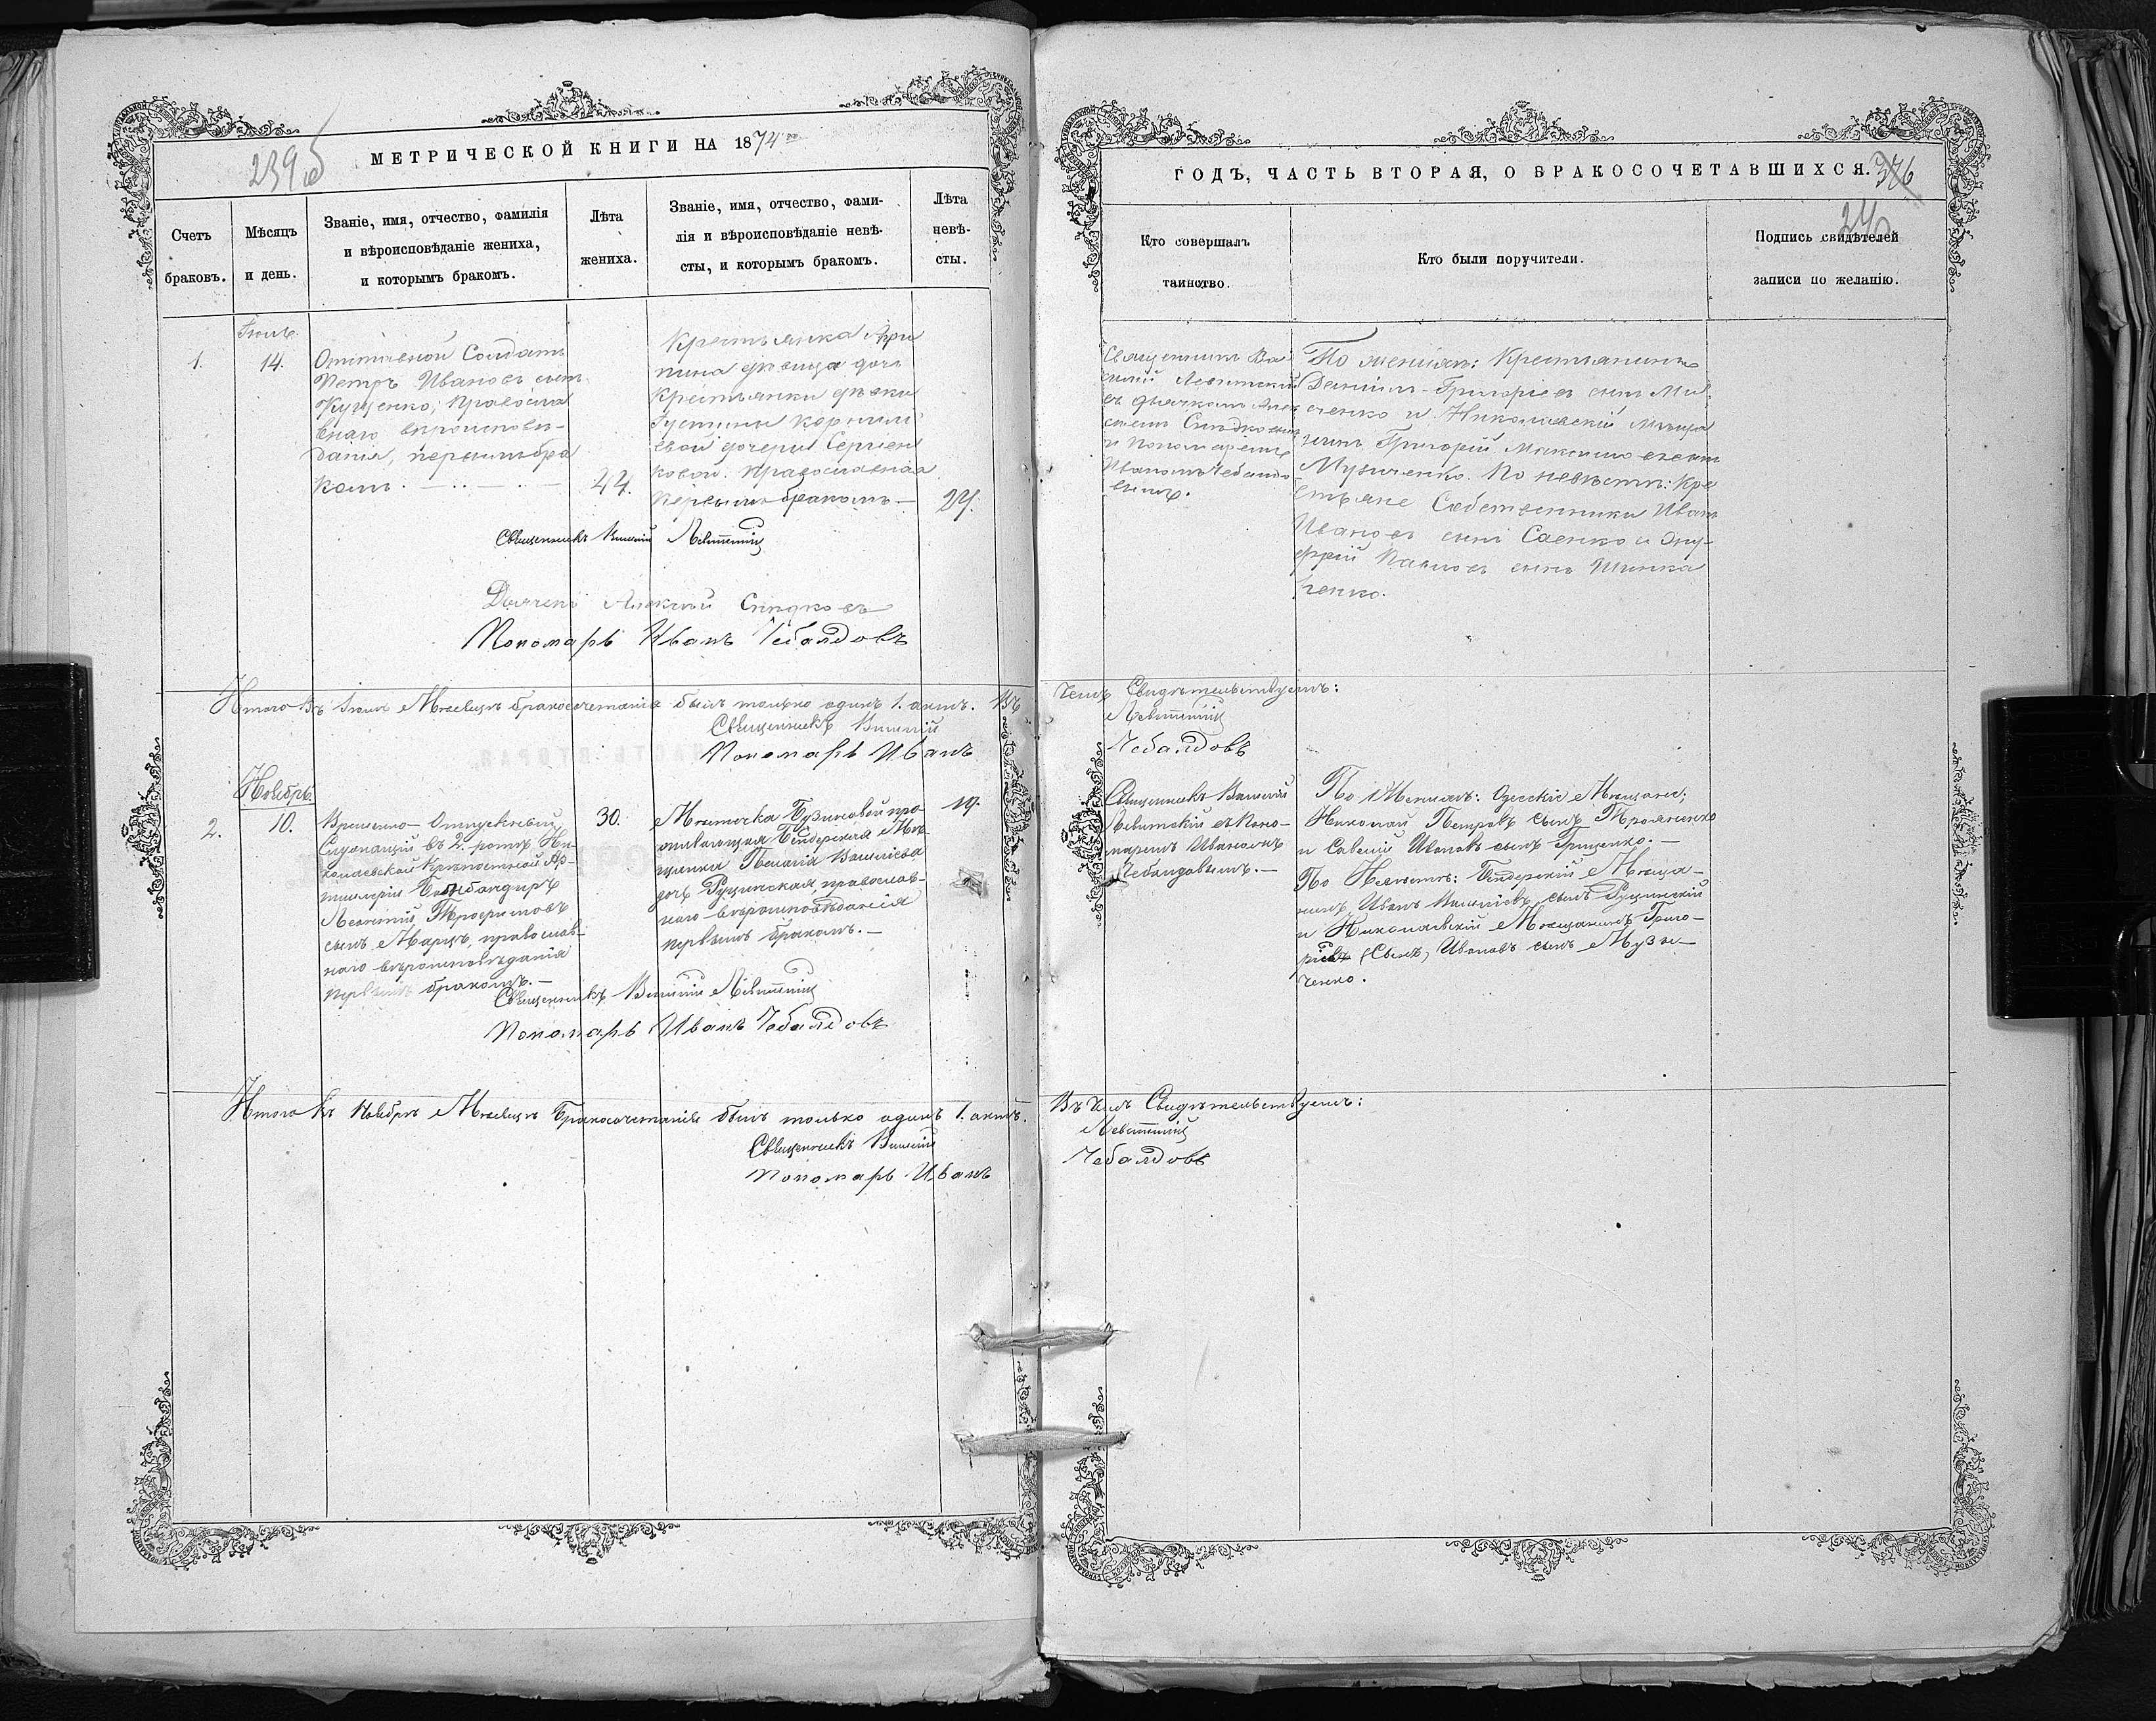 239 об
МЕТРИЧЕСКОЙ КНИГИ НА 1874
Счетъ
браковъ.
Мѣсяцъ
и день.
Званіе, имя, отчество, фамилія
и вѣроисповѣданіе жениха,
и которымъ бракомъ.
Лѣта
жениха.
Званіе, имя, отчество, фами-
лія и вѣроисповѣданіе невѣ-
сты, и которымъ бракомъ.
Лѣта
невѣ-
сты.
1.
14.
Отставной Солдатъ
Петръ Ивановъ сынъ
Куценко; Правосла
внаго вѣроисповѣ-
данія, первымъ бра
комъ.
44.
Крестьянка Ири
нина дѣвица дочь
Крестьянки дѣвки
Устины Корнилі
евой дочери Сергіен
ковой. Православная
первымъ бракомъ —
24.
Священникъ Василій Левитскій
Дьячекъ Алексій Снядковъ
Пономарь Иванъ Чебандовъ
Итого въ Мѣсяцѣ бракосочетанія былъ только одинъ 1. актъ. Въ
Священникъ Василій
Пономарь Иванъ
Ноябрь
2.
10.
Временно-Отпускный
Служащій въ 2. ротѣ Ни-
колаевской Крѣпостной Ар-
тиллеріи Бомбандиръ
Леонтій Трофимовъ
сынъ Марцъ, православ-
наго вѣроисповѣданія
первымъ бракомъ. —
30.
Мѣстечка про-
живающая Бендерская Мѣ-
щанка Пелагія Васильева
дочь Рущинская, православ-
наго вѣроисповѣданія
первымъ бракомъ. —
19.
Священникъ Василій Левитскій
Пономарь Иванъ Чебандовъ
Итого въ Ноябрѣ Мѣсяцѣ Бракосочетаніе былъ только одинъ 1. актъ.
Священникъ Василій
Пономарь Иванъ
ГОДЪ, ЧАСТЬ ВТОРАЯ, О БРАКОСОЧЕТАВШИХСЯ.
376
240
Кто совершалъ
таинство.
Кто были поручители.
Подпись свидѣтелей
записи по желанію.
Священникъ Ва
силій Левитскій
съ дьячкомъ Алек
сіемъ Снядковымъ
и Пономаремъ
Иваномъ Чебандо
вымъ.
По женихѣ: Крестьянинъ
Даніилъ Григоріевъ сынъ
ченко и Николаевскій Мѣща
нинъ Григорій сынъ
Музиченко. По невѣстѣ: Кре
стьяне Собственники Иванъ
Ивановъ сынъ Саенко и Ону-
фрій Павловъ сынъ Шинка
ренко.
чемъ Свидѣтельствуемъ:
Левитскій
Чебандовъ
Священникъ Василій
Левитскій съ Поно-
маремъ Иваномъ
Чебандовымъ. —
По Женихѣ: Одесскіе Мѣщане;
Николай Петровъ сынъ Трояненко
и Савелій Ивановъ сынъ Гриценко. —
По Невѣстѣ: Бендерскій Мѣща-
нинъ Иванъ Васильевъ сынъ Рущинскій
и Николаевскій Мѣщанинъ Григо-
рій (Сынъ) Ивановъ сынъ Музы-
ченко.
Въ чемъ Свидѣтельствуемъ:
Левитскій
Чебандовъ